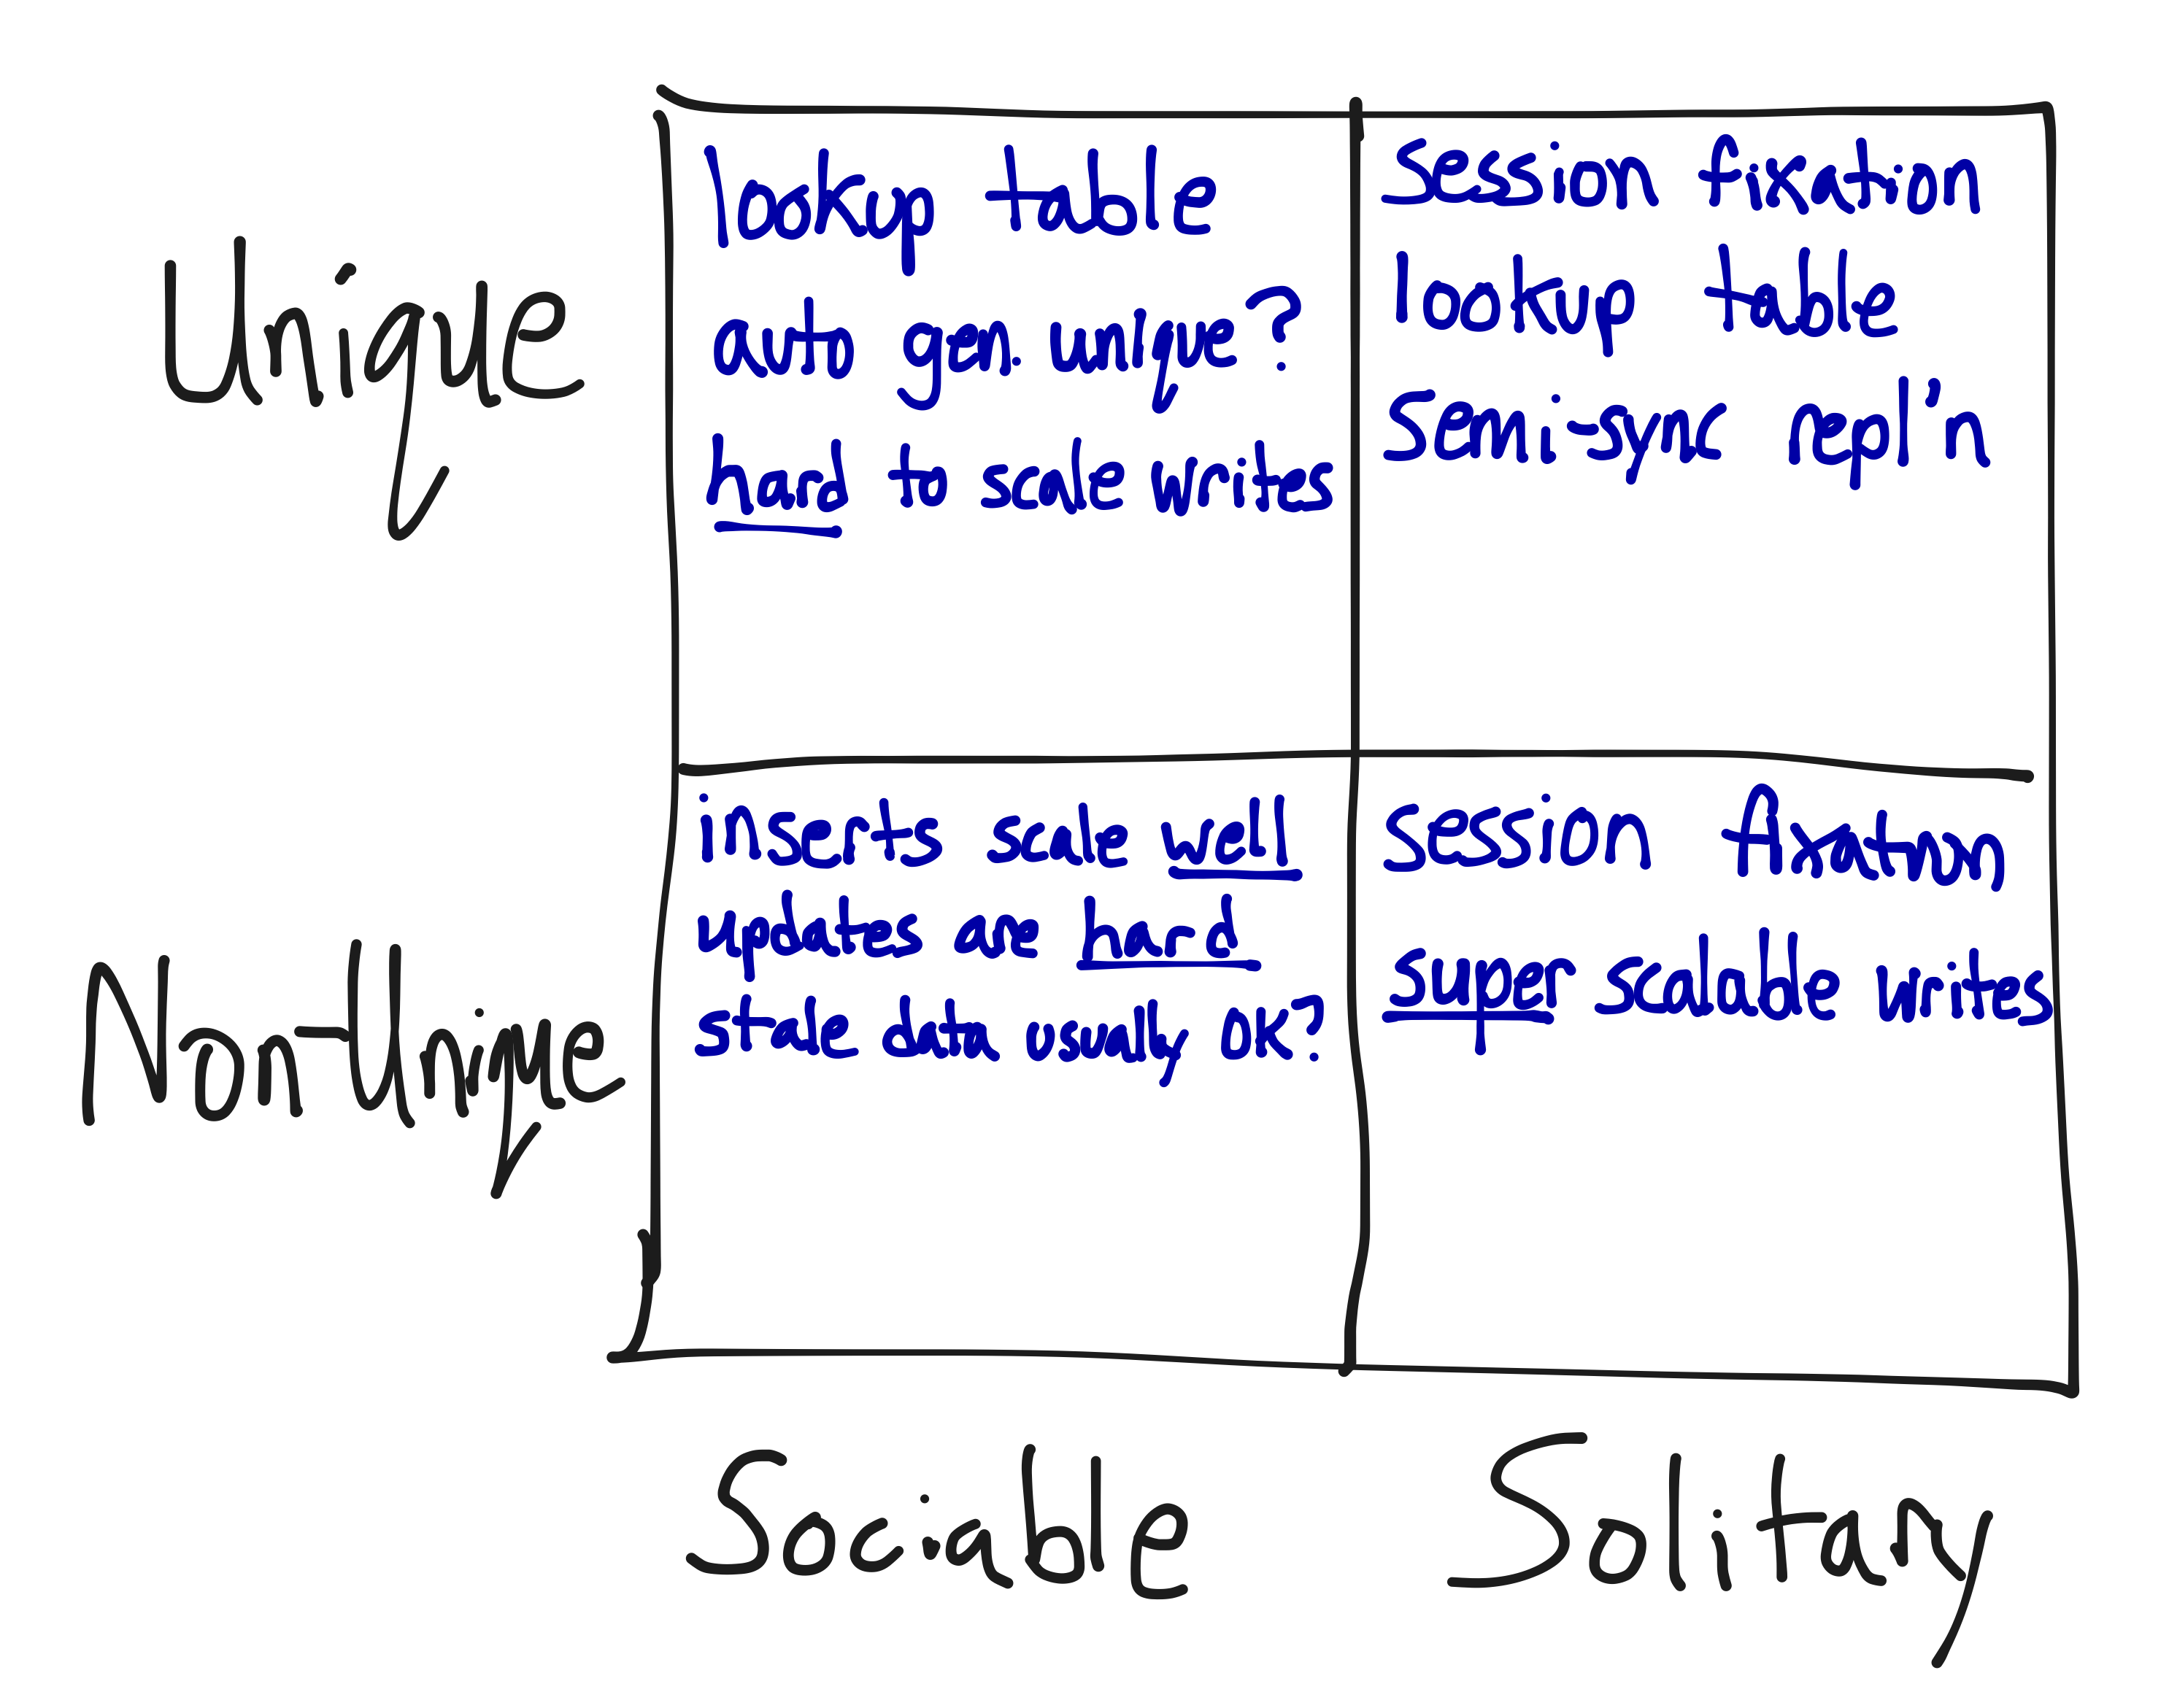 Unique
lookup table
auto gen. unique?
hard to scale writes
session fixation
lookup table
semi-sync repl'n
NonUnique
inserts scale well
updates are hard
stale data usually ok?
session fixation
super scalable writes
Sociable
Solitary